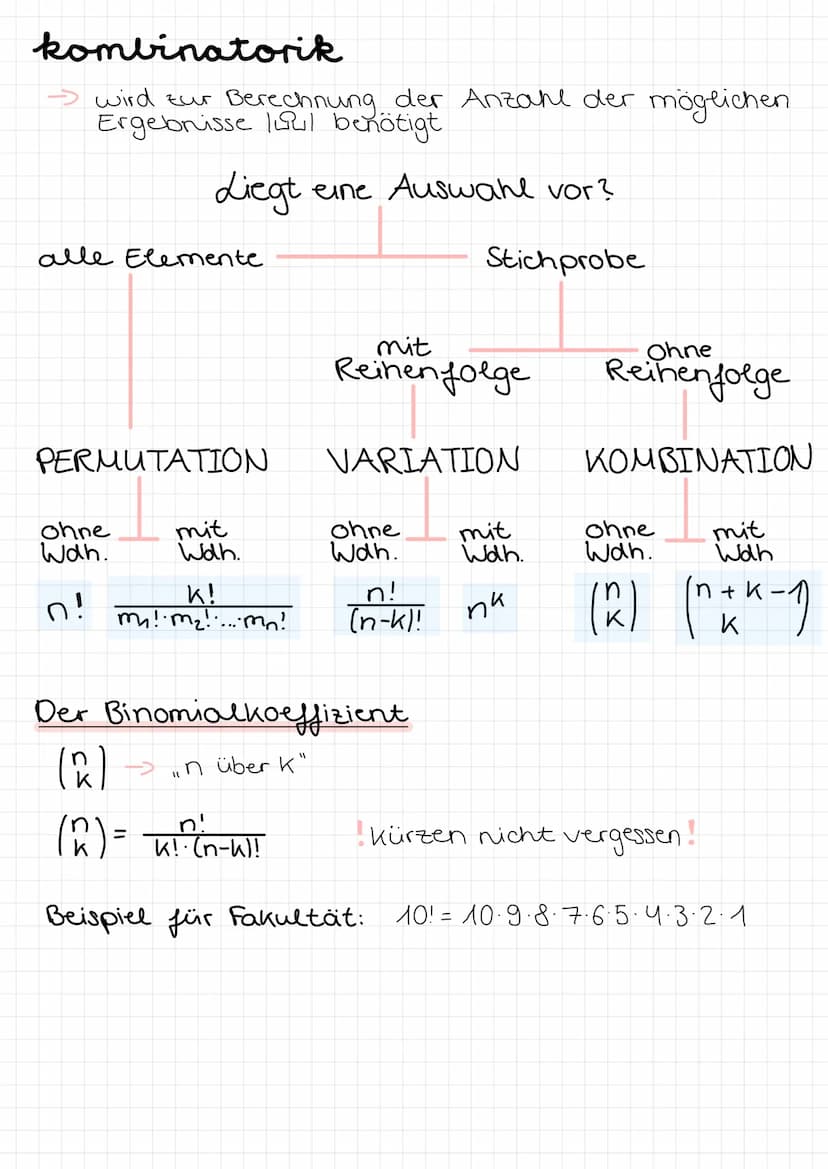 kombinatorik
→ wird zur Berechnung der Anzahl der möglichen
Ergebnisse |Ω| benötigt
Liegt eine Auswahl vor?
alle Elemente
Stichprobe
mit
Reihenfolge
ohne
Reihenfolge
PERMUTATION
VARIATION
KOMBINATION
ohne
Wdh.
mit
Wdh.
ohne
Wdh.
mit
Wdh.
ohne
Wdh.
mit
Wdh
n!
k!
m₁!·m₂!·...·mₙ!
n!
(n-k)!
nᵏ
(n
k)
(n+k-1
k)
Der Binomialkoeffizient
(n
k) → „n über k"
(n
k) = n!
k!·(n-k)!
!kürzen nicht vergessen!
Beispiel für Fakultät: 10! = 10·9·8·7·6·5·4·3·2·1